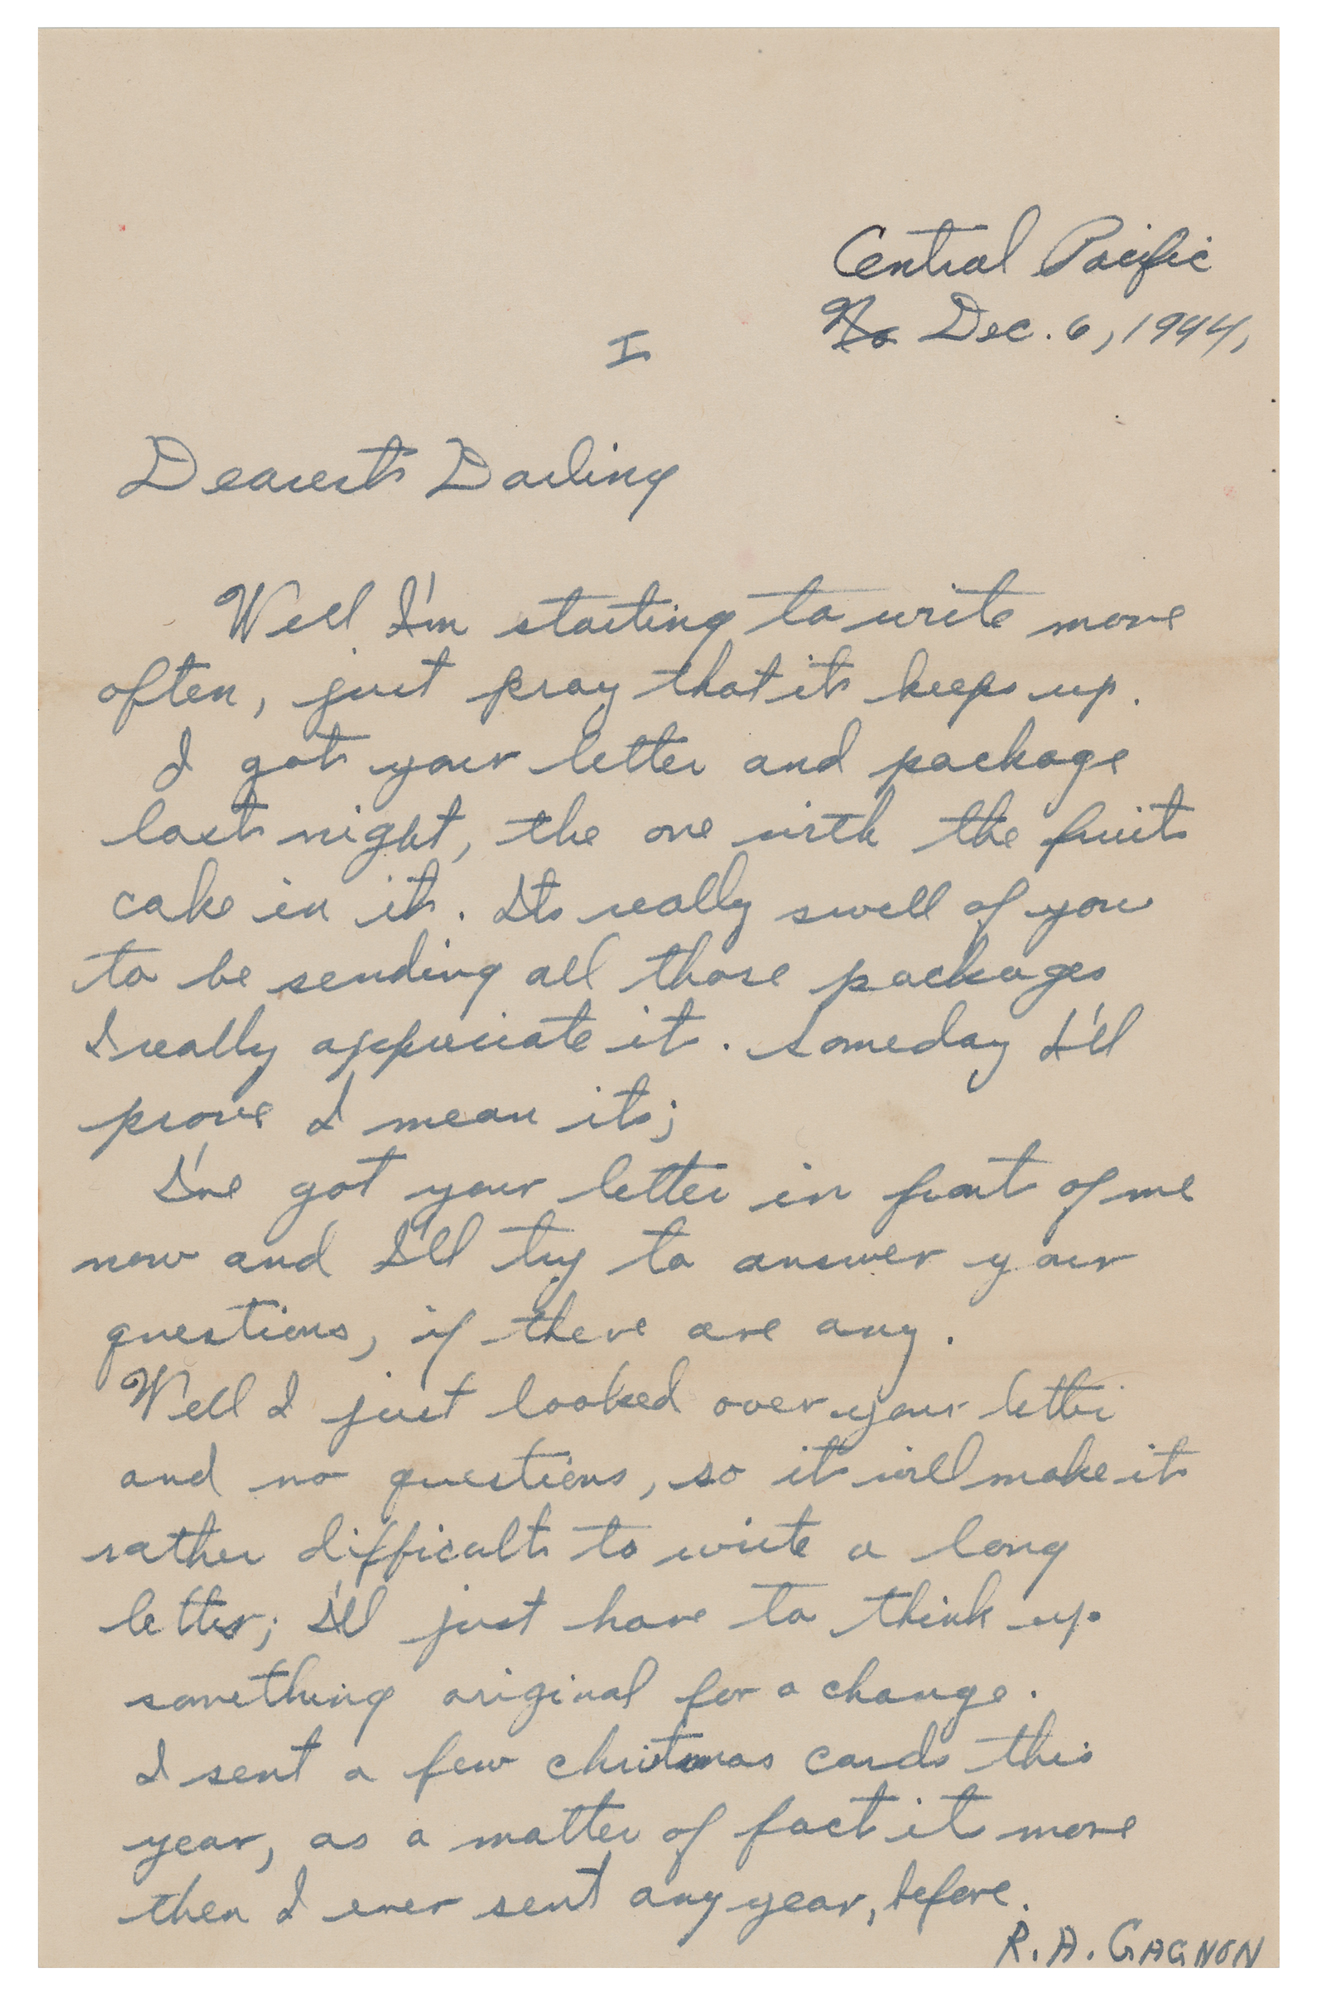 Central Pacific
No Dec. 6, 1944,
I
Dearest Darling
Well I'm starting to write more
often, just pray that it keeps up.
I got your letter and package
last night, the one with the fruit
cake in it. Its really swell of you
to be sending all those packages
I really appreciate it. Someday I'll
prove I mean it;
I've got your letter in front of me
now and I'll try to answer your
questions, if there are any.
Well I just looked over your letter
and no questions, so it will make it
rather difficult to write a long
letter; I'll just have to think up
something original for a change.
I sent a few christmas cards this
year, as a matter of fact its more
then I ever sent any year, before.
R. A. GAGNON